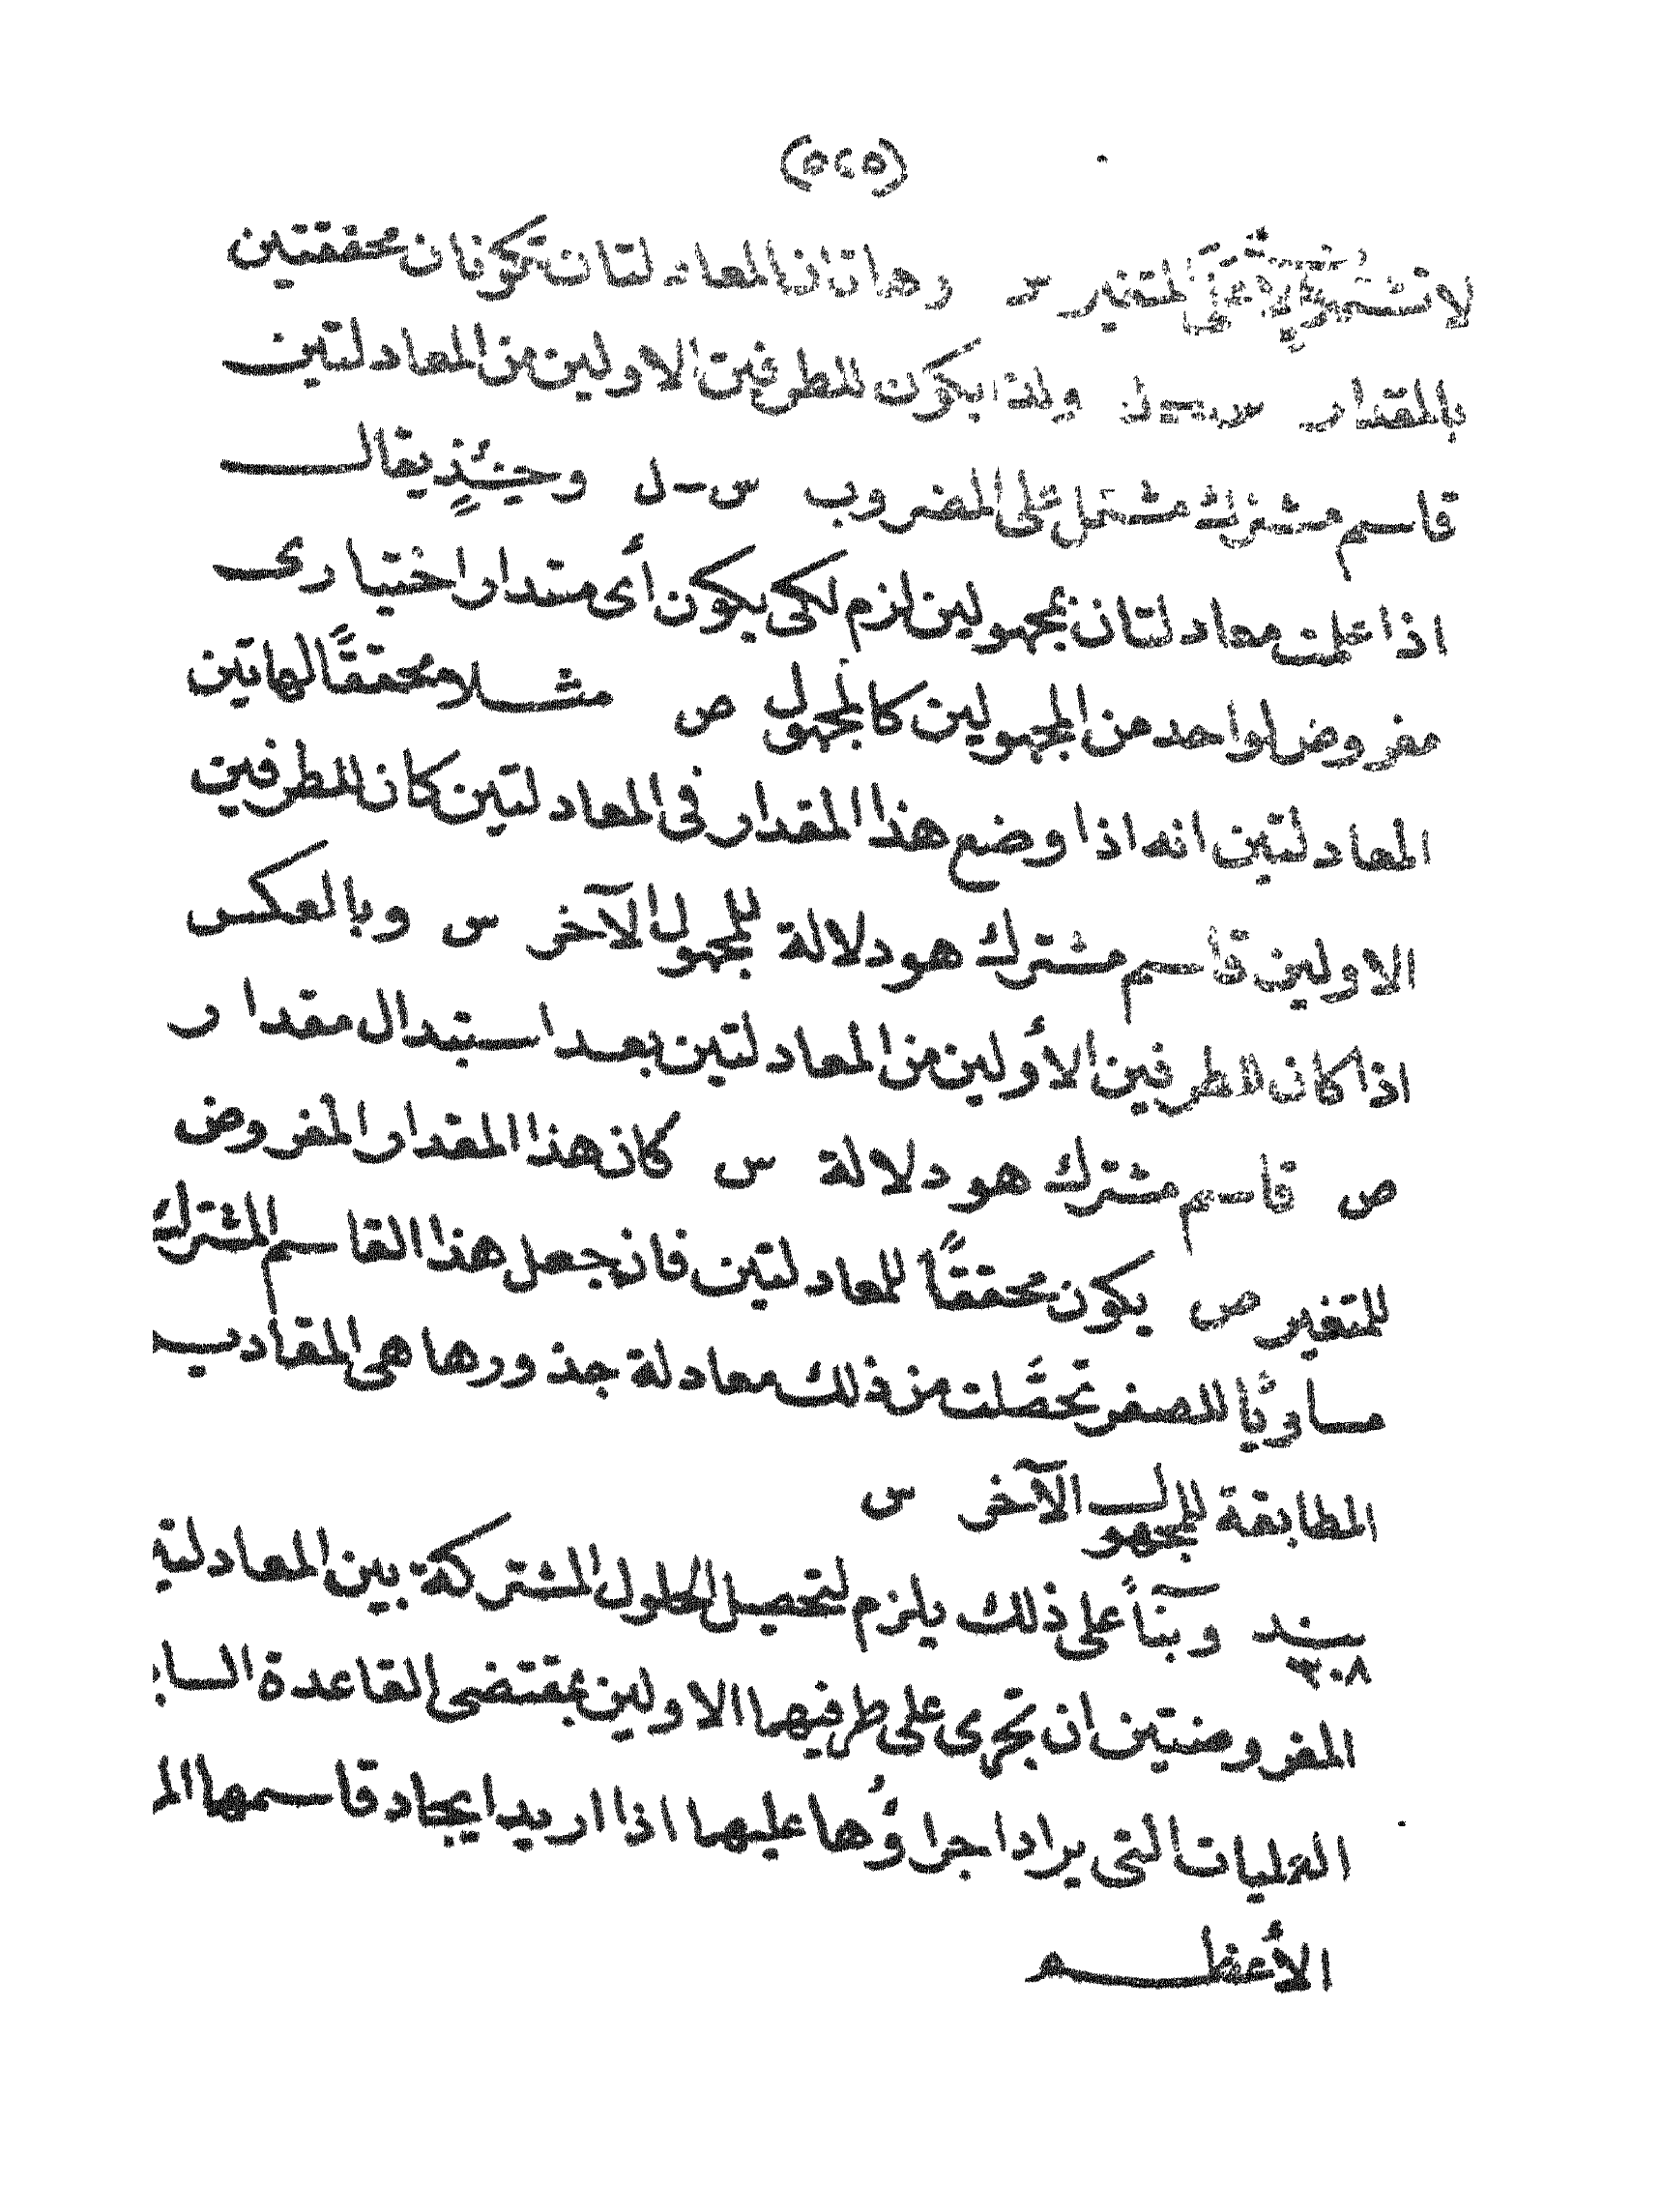 (٥٢٥)
لا تشتمل إلا على المتغير س وهاتان المعادلتان تكونان محققتين
بالمقدار س = ل ولذا يكون للطرفين الاولين من المعادلتين
قاسم مشترك مشتمل على المضروب س - ل وحينئذٍ يقال
اذا علمت معادلتان بمجهولين لزم لكى يكون أى مقدار اختيارى
مفروض لواحد من المجهولين كالمجهول ص مثلا محققًا لهاتين
المعادلتين انه اذا وضع هذا المقدار فى المعادلتين كان للطرفين
الاولين قاسم مشترك هو دلالة للمجهول الآخر س وبالعكس
اذا كان للطرفين الأولين من المعادلتين بعد استبدال مقدار
ص قاسم مشترك هو دلالة س كان هذا المقدار المفروض
للمتغير ص يكون محققًا للمعادلتين فان جعل هذا القاسم المشترك
مساويًا للصفر تحصَّلت من ذلك معادلة جذورها هى المقاديـ
المطابقة للمجهول الآخر س
بنـد وبنآءً على ذلك يلزم لتحصيل الحلول المشتركة بين المعادلتيـ
٣٠٨
المفروضتين ان تجرى على طرفيهما الاولين بمقتضى القاعدة السابـ
العمليات التى يراد اجراؤها عليهما اذا اريد ايجاد قاسمهما المـ
الأعظم